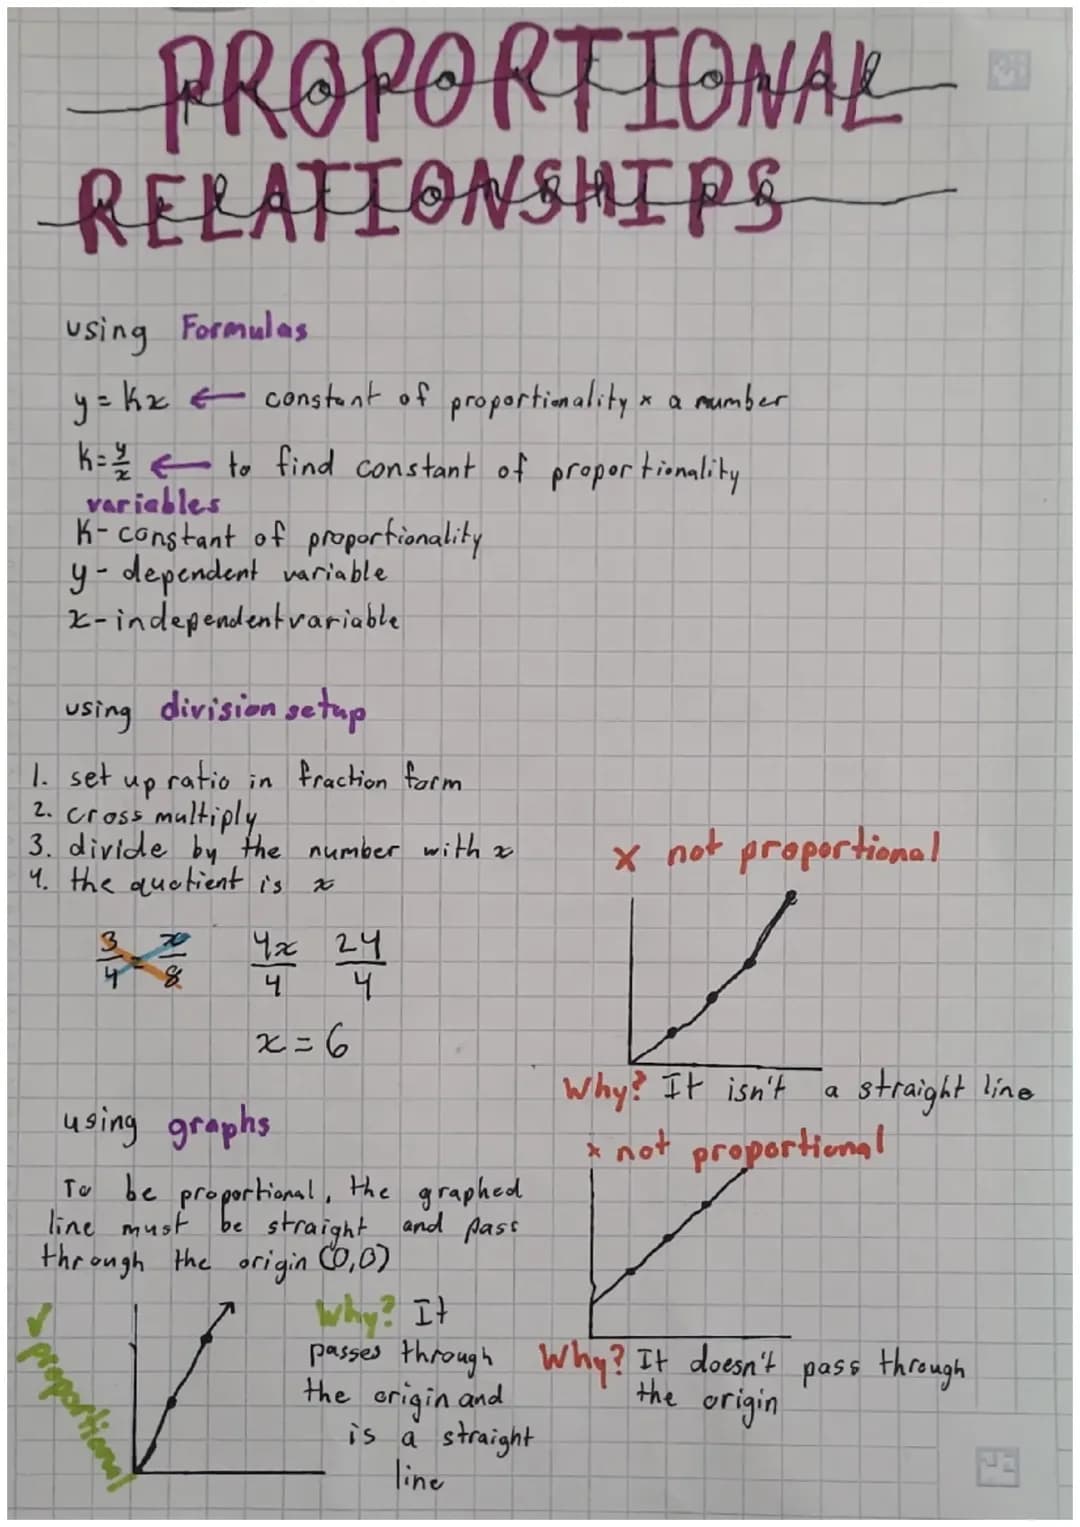 PROPORTIONAL
proportional
RELATIONSHIPS
Relationships
using Formulas
y = kx ← constant of proportionality × a number
k = y/x ← to find constant of proportionality
variables
K - constant of proportionality
y - dependent variable
x - independent variable
using division setup
1. set up ratio in fraction form
2. cross multiply
3. divide by the number with x
4. the quotient is x
3/4 = x/8 4x/4 24/4
x = 6
x not proportional
Why? It isn't a straight line
using graphs
To be proportional, the graphed
line must be straight and pass
through the origin (0,0)
x not proportional
Why? It doesn't pass through
the origin
✓ proportional
Why? It
passes through
the origin and
is a straight
line